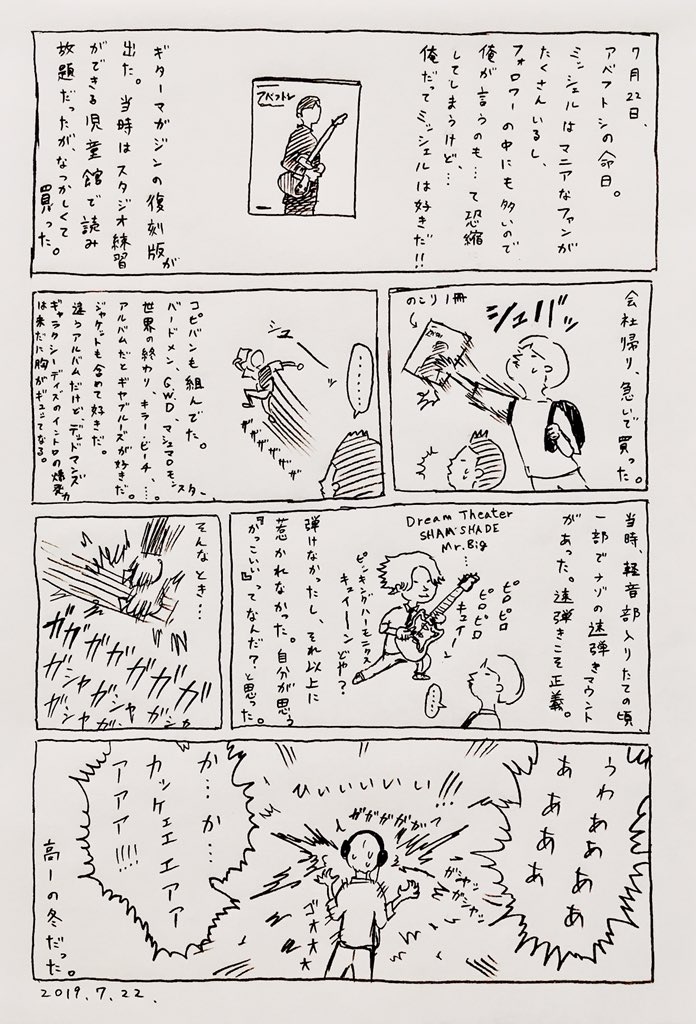 7月22日、
アベフトシの命日。
ミッシェルはマニアなファンが
たくさんいるし、
フォロワーの中にも多いので
俺が言うのも…て恐縮
してしまうけど、…
俺だってミッシェルは好きだ!!
アベフトシ
ギターマガジンの復刻版が
出た。当時はスタジオ練習
ができる児童館で読み
放題だったが、なつかしくて
買った。
会社帰り、急いで買った。
シュバッ
のこり1冊
シュ
……
コピバンも組んでた。
バードメン、G.W.D、マシュマロモンスター、
世界の終わり、キラー・ビーチ、…。
アルバムだとギヤブルーズが好きだ。
ジャケットも含めて好きだ。
違うアルバムだけど、デッドマンズ
ギャラクシーデイズのイントロの爆発力
は未だに胸がギュッてなる。
当時、軽音部入りたての頃、
一部でナゾの速弾きマウント
があった。速弾きこそ正義。
Dream Theater
SHAM SHADE
Mr. Big
…
ピロピロ
ピロピロ
キュイーン
ピッキングハーモニクス
キュイーーン どや?
…
弾けなかったし、それ以上に
惹かれなかった。自分が思う
『かっこいい』ってなんだ?と思った。
そんなとき…
ガガガガガガ
ガシャガシャガシャ
うわああああ
あああああ
ひぃぃぃぃぃ!!!
ガガガガガガッ
ガシャッ
ガシャッ
ゴオオオ
か…か…
カッケェェエアア
アアア!!!!
高一の冬だった。
2019.7.22.